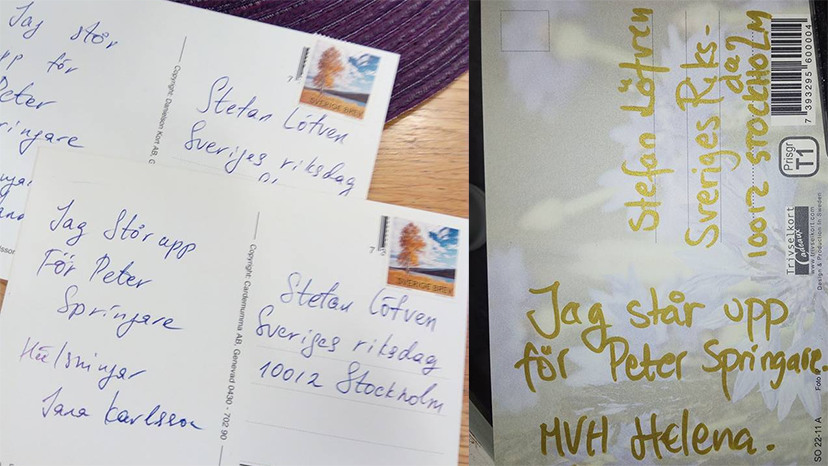 Jag står
upp för
Peter
Springare
Copyright: Danielson Kort AB, G
7
SVERIGE BREV
Stefan Löfven
Sveriges riksdag
Jag Står upp
För Peter
Springare
Hälsningar
Jana Karlsson
Copyright: Cardemumma AB, Genevad 0430 - 702 90
7
SVERIGE BREV
Stefan Löfven
Sveriges riksdag
10012 Stockholm
Stefan Löfven
Sveriges Riks-
dag
10012 STOCKHOLM
7 393295 600004
Prisgr
T1
Trivselkort
Cadeau
www.trivselkort.com
Design & Production in Sweden
Jag står upp
för Peter Springare.
MVH Helena.
Foto
SO 22-11 A